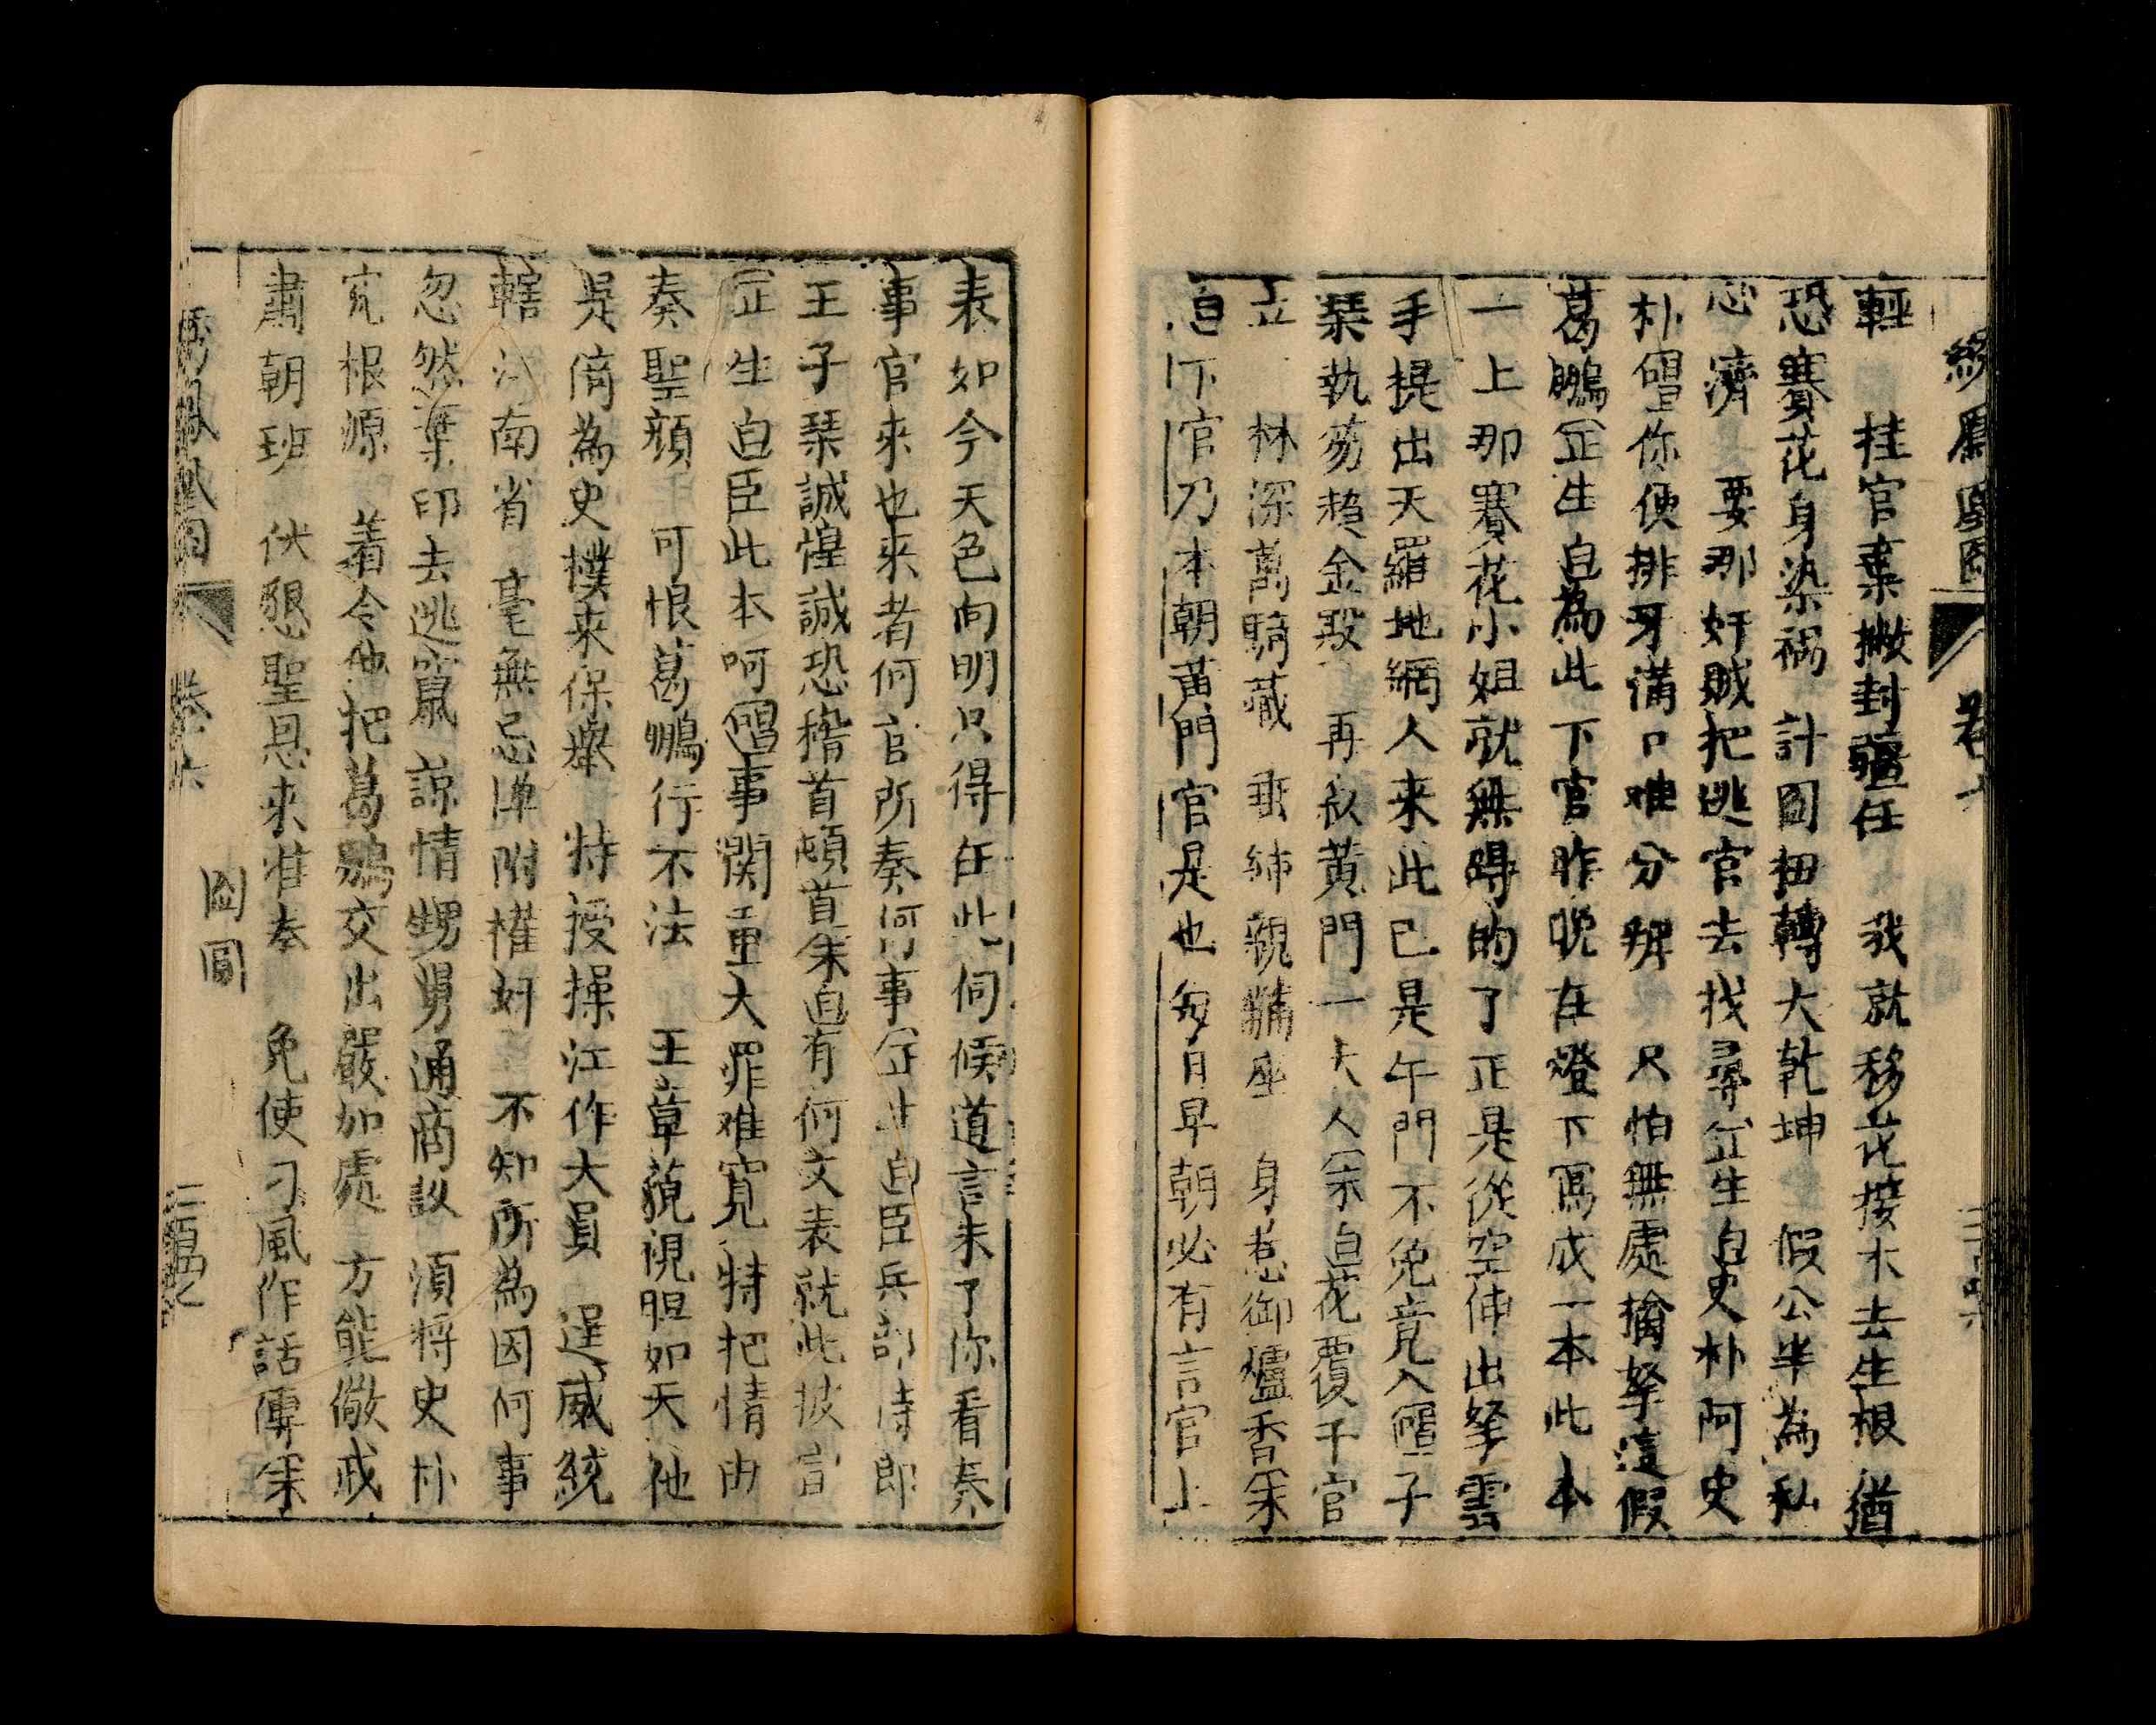 綉鳳凰圖 卷六
輕 挂官棄撇封疆任 我就移花接木去生根 猶
恐賽花身染禍 計圖扭轉大乾坤 假公半為私
心濟 要那奸賊把逃官去找尋 正生白 史朴阿史
朴 唱 你便排牙滿口难分辨 只怕無處擒拏這假
葛鵬 正生白 為此下官昨晚在燈下寫成一本此本
一上那賽花小姐就無碍的了正是從空伸出拏雲
手提出天羅地網人来此已是午門不免竟入 唱 王子
琹執笏趋金殿 再叙黄門一大人 末白 花覆千官
林深萬騎藏 垂紳親黼座 身惹御爐香 末
白 下官乃本朝黃門官是也每日早朝必有言官上
表如今天色向明只得在此伺候道言未了你看奏
事官來也來者何官所奏何事 正生白 臣兵部侍郎
王子琹誠惶誠恐稽首頓首 末白 有何文表就此披宣
正生白 臣此本呵 唱 事関重大罪难寛 特把情由
奏聖顔 可恨葛鵬行不法 王章藐視胆如天 他
是倚為史撲来保舉 特授操江作大員 逞威統
轄江南省 毫無忌憚附權奸 不知所為因何事
忽然棄印去逃竄 諒情甥舅通商議 須將史朴
究根源 着令他把葛鵬交出嚴加處 方能儆戒
肅朝班 伏懇聖恩來准奏 免使刁風作話傳 末
圖圓
綉鳳凰圖 卷六